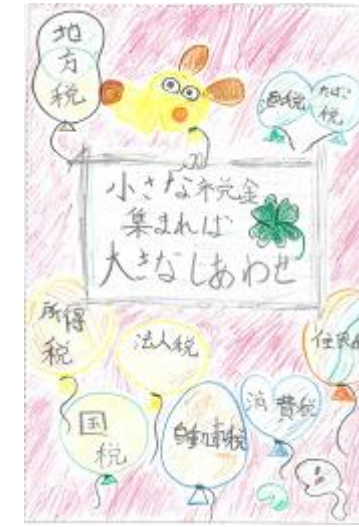 地
方
税
酒税
たばこ
税
小さな税金
集まれば
大きなしあわせ
所得
税
法人税
住民税
国
税
自動車税
消費税